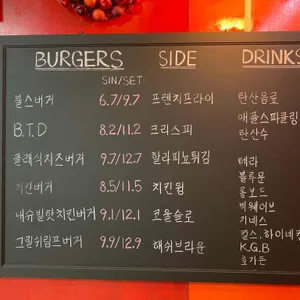 BURGERS SIDE DRINKS
SIN/SET
불스버거 6.7/9.7 프렌치프라이 탄산음료
애플스파클링
B.T.D 8.2/11.2 크리스피 탄산수
클래식치즈버거 9.7/12.7 할라피뇨튀김 테라
치킨버거 8.5/11.5 치킨윙 블루문
롱보드
내슈빌핫치킨버거 9.1/12.1 코울슬로 빅웨이브
기네스
그릴쉬림프버거 9.9/12.9 해쉬브라운 칼스, 하이네켄
K.G.B
호가든